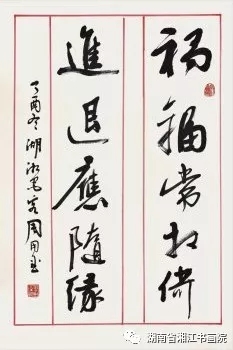 禍福常相倚
進退應隨緣
丁酉冬 湖湘墨客周用
湖南省湘江书画院